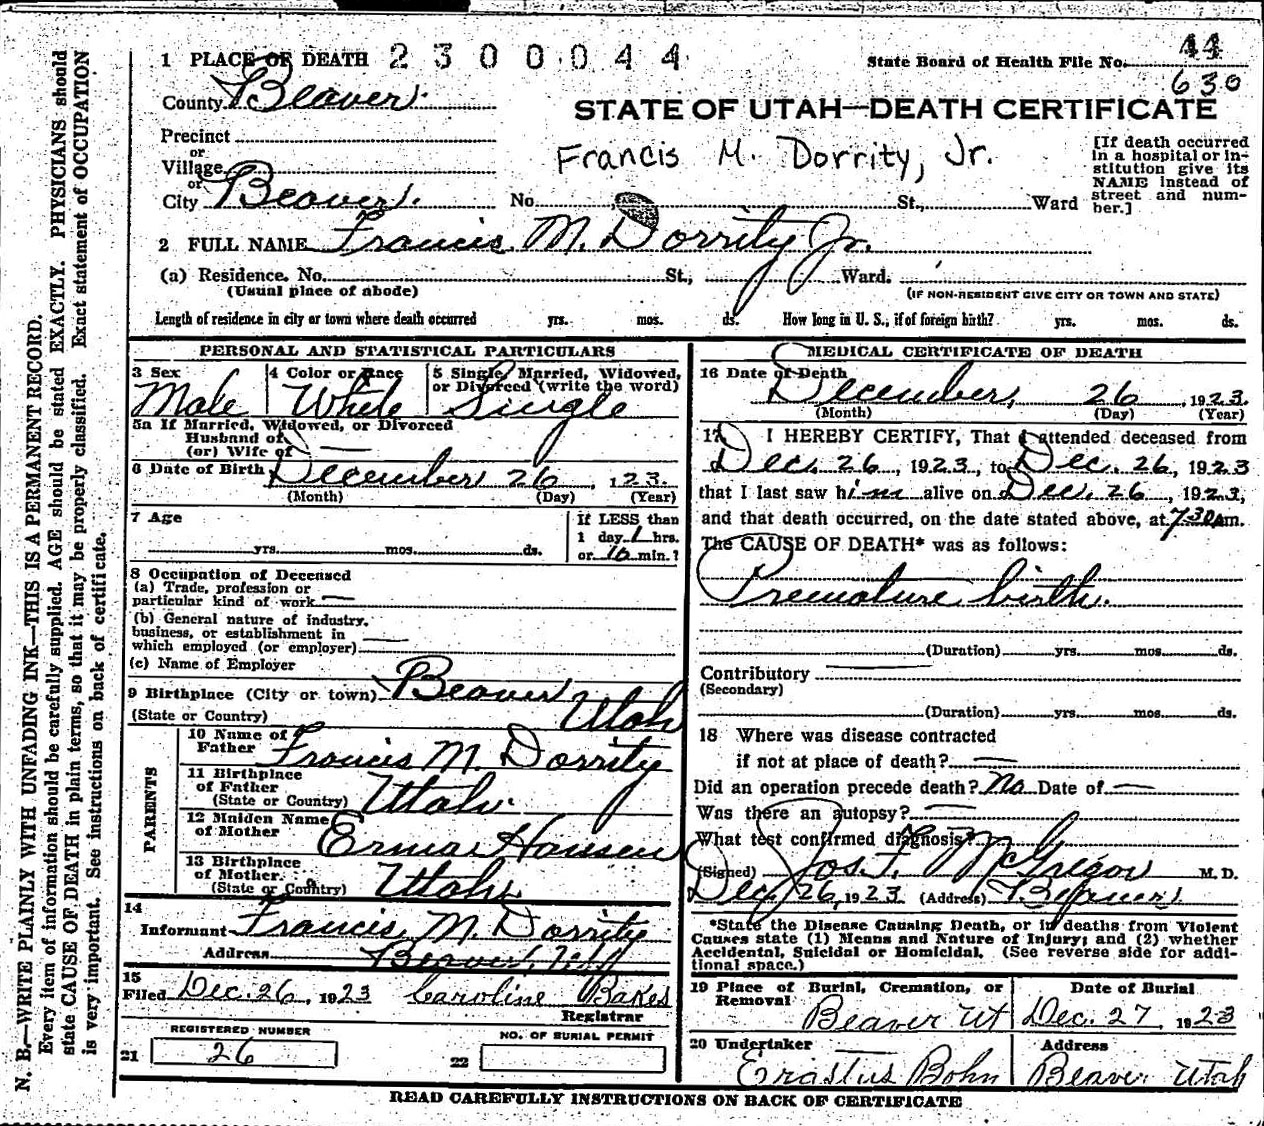 N. B.—WRITE PLAINLY WITH UNFADING INK—THIS IS A PERMANENT RECORD.
Every item of information should be carefully supplied. AGE should be stated EXACTLY. PHYSICIANS should
state CAUSE OF DEATH in plain terms, so that it may be properly classified. Exact statement of OCCUPATION
is very important. See instructions on back of certificate.
1 PLACE OF DEATH 2300044
State Board of Health File No. 44
630
County Beaver
STATE OF UTAH—DEATH CERTIFICATE
Precinct
or
Village
or
City Beaver. No. St., Ward
Francis M. Dorrity, Jr.
[If death occurred
in a hospital or in-
stitution give its
NAME instead of
street and num-
ber.]
2 FULL NAME Francis M. Dorrity Jr.
(a) Residence. No. St., Ward.
(Usual place of abode)
(IF NON-RESIDENT GIVE CITY OR TOWN AND STATE)
Length of residence in city or town where death occurred yrs. mos. ds. How long in U. S., if of foreign birth? yrs. mos. ds.
PERSONAL AND STATISTICAL PARTICULARS
3 Sex
Male
4 Color or Race
White
5 Single, Married, Widowed,
or Divorced (write the word)
Single
5a If Married, Widowed, or Divorced
Husband of
(or) Wife of —
6 Date of Birth December 26, 123
(Month) (Day) (Year)
7 Age
yrs. mos. ds.
If LESS than
1 day 1 hrs.
or 10 min.?
8 Occupation of Deceased
(a) Trade, profession or
particular kind of work —
(b) General nature of industry,
business, or establishment in
which employed (or employer) —
(c) Name of Employer
9 Birthplace (City or town) Beaver
(State or Country) Utah
PARENTS
10 Name of
Father Francis M. Dorrity
11 Birthplace
of Father
(State or Country) Utah.
12 Maiden Name
of Mother Erma Hansen
13 Birthplace
of Mother.
(State or Country) Utah
14
Informant Francis M. Dorrity
Address Beaver, Utah
15
Filed Dec. 26, 1923 Caroline Bakes
Registrar
REGISTERED NUMBER
21 26
NO. OF BURIAL PERMIT
22
MEDICAL CERTIFICATE OF DEATH
16 Date of Death
December, 26, 1923.
(Month) (Day) (Year)
17 I HEREBY CERTIFY, That I attended deceased from
Dec. 26, 1923, to Dec. 26, 1923
that I last saw him alive on Dec. 26, 1923,
and that death occurred, on the date stated above, at 7:30 am.
The CAUSE OF DEATH* was as follows:
Premature birth.
(Duration) yrs. mos. ds.
Contributory —
(Secondary)
(Duration) yrs. mos. ds.
18 Where was disease contracted
if not at place of death? —
Did an operation precede death? No Date of —
Was there an autopsy? —
What test confirmed diagnosis?
(Signed) Jos. F. McGregor M. D.
Dec. 26, 1923 (Address) Beaver
*State the Disease Causing Death, or in deaths from Violent
Causes state (1) Means and Nature of Injury; and (2) whether
Accidental, Suicidal or Homicidal. (See reverse side for addi-
tional space.)
19 Place of Burial, Cremation, or
Removal
Beaver Ut
Date of Burial
Dec. 27, 1923
20 Undertaker
Erastus Bohn
Address
Beaver Utah
READ CAREFULLY INSTRUCTIONS ON BACK OF CERTIFICATE